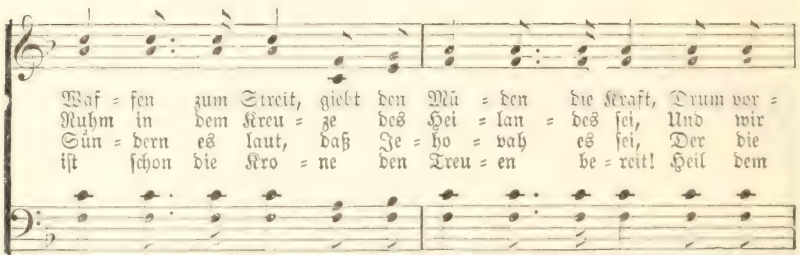 Waf = fen zum Streit, giebt den Mü = den die Kraft, Drum vor =
Ruhm in dem Kreu = ze des Hei = lan = des sei, Und wir
Sün = dern es laut, daß Je = ho = vah es sei, Der die
ist schon die Kro = ne den Treu = en be = reit! Heil dem